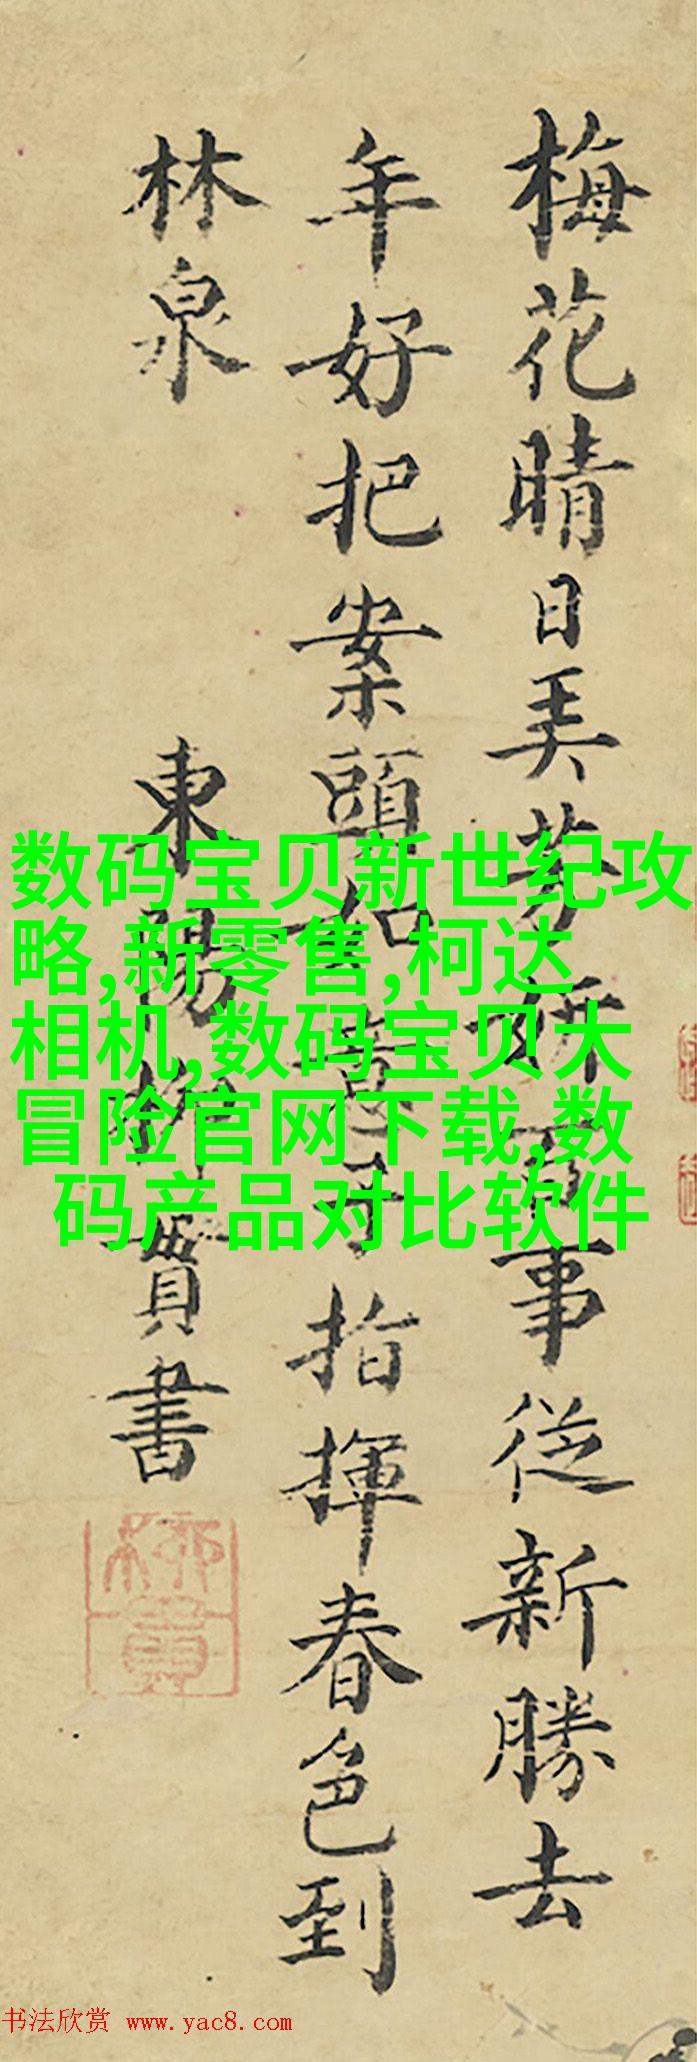 梅花晴日美芳妍百事從新勝去
年好把案頭如意子指揮春色到
林泉
東陽柳貫書
柳貫
数码宝贝新世纪攻
略,新零售,柯达
相机,数码宝贝大
冒险官网下载,数
码产品对比软件
书法欣赏 www.yac8.com